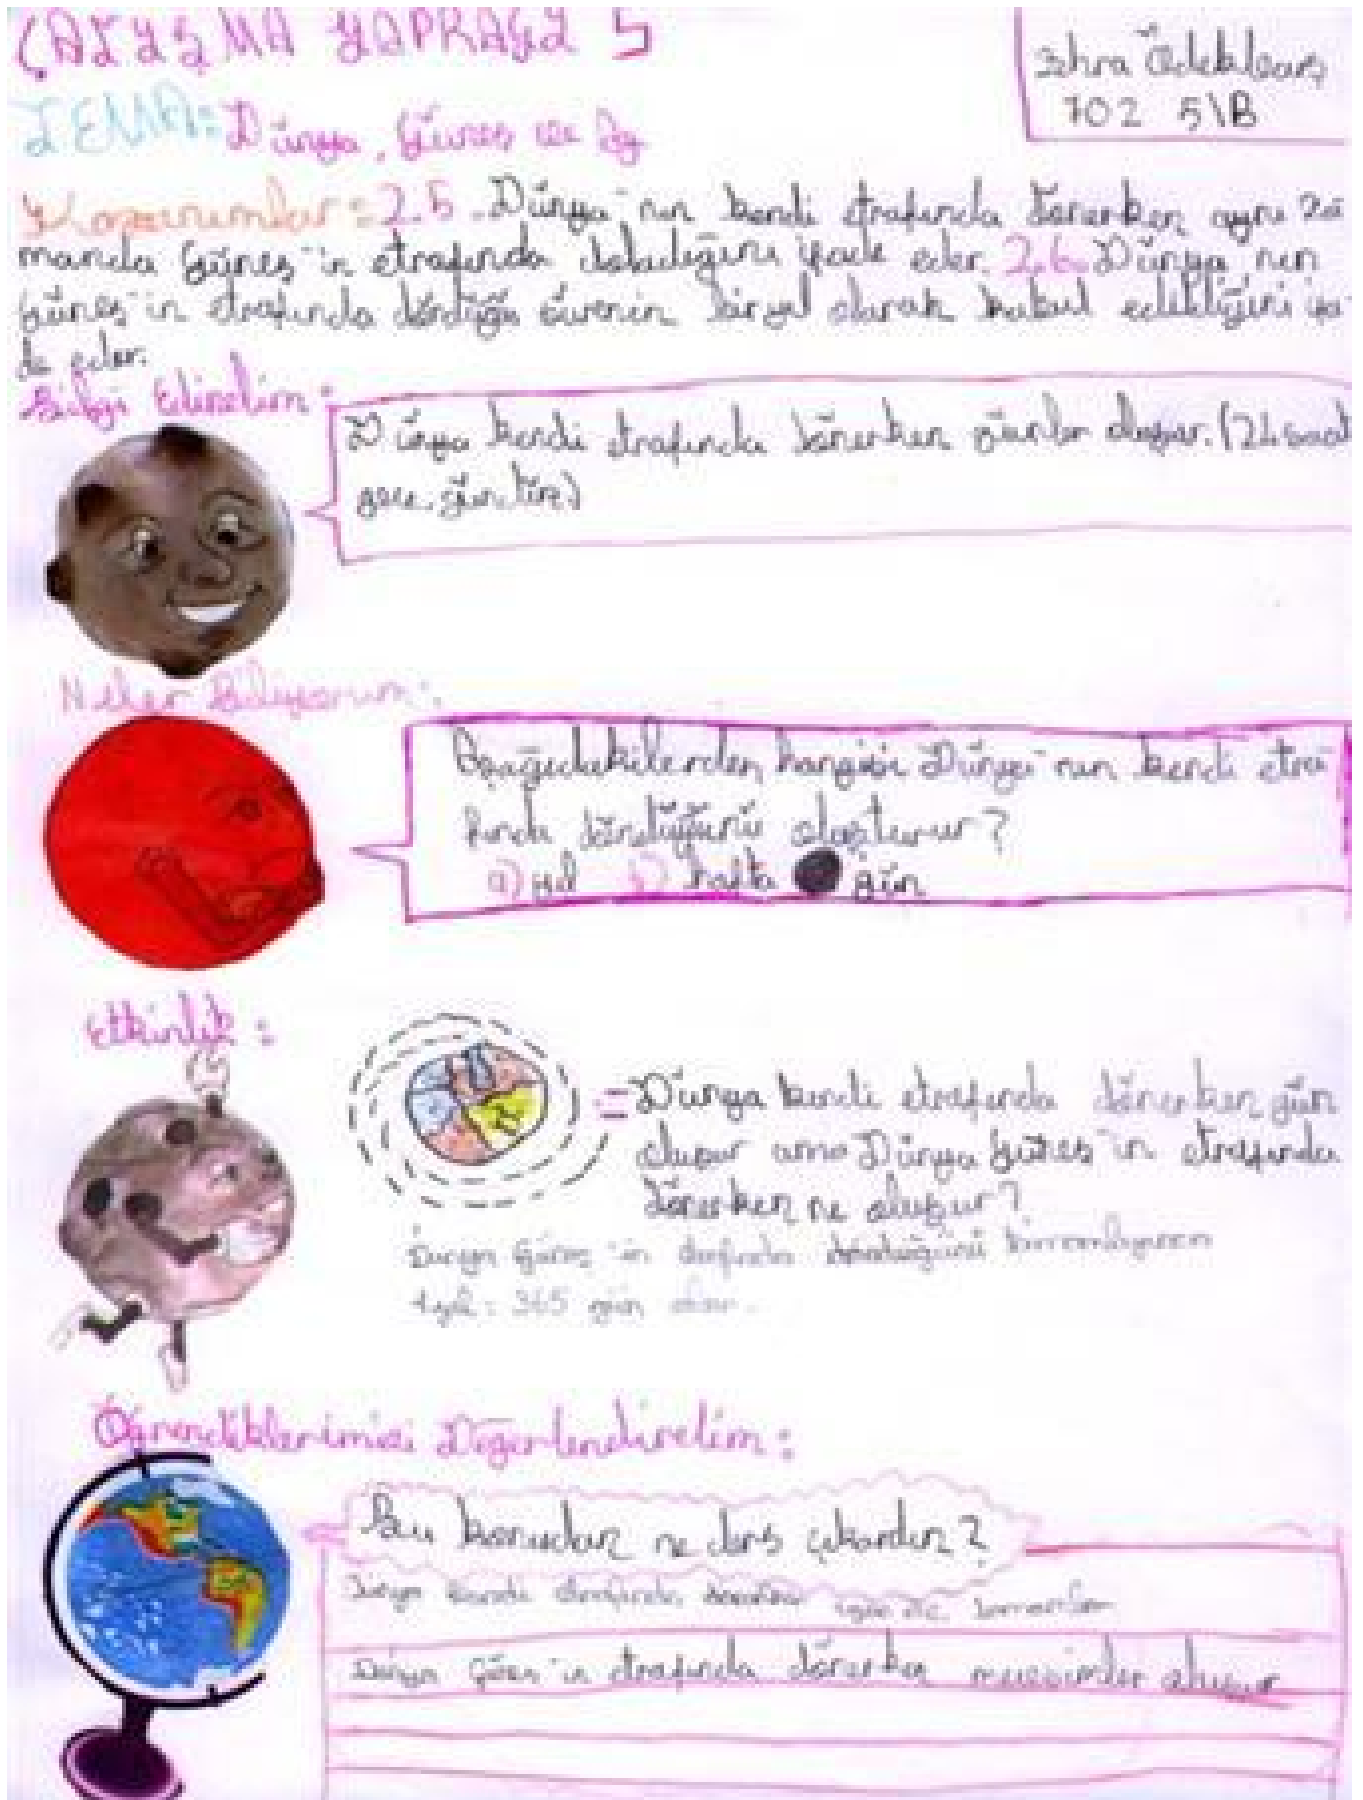 ÇALIŞMA YAPRAĞI 5
Zehra
702 5\B
TEMA: Dünya, Güneş ve Ay
Kazanımlar: 2.5. Dünya'nın kendi etrafında dönerken aynı za
manda Güneş'in etrafında doladığını ifade eder. 2.6. Dünya'nın
Güneş'in etrafında döndüğü sürenin bir yıl olarak kabul edildiğini ifa
de eder.
Bilgi Edinelim:
Dünya kendi etrafında dönerken günler oluşur. (24 saat
gece, gündüz)
Neler Biliyorum:
Aşağıdakilerden hangisi Dünya'nın kendi etra
fında döndüğünü oluşturur?
a) yıl b) hafta gün
Etkinlik:
= Dünya kendi etrafında dönerken gün
oluşur ama Dünya Güneş'in etrafında
dönerken ne oluşur?
Dünya Güneş'in etrafında
1 yıl: 365 gün olur.
Öğrendiklerimizi Değerlendirelim:
Bu konudan ne ders çıkardın?
Dünya kendi etrafında
Dünya Güneş'in etrafında dönerken mevsimler oluşur